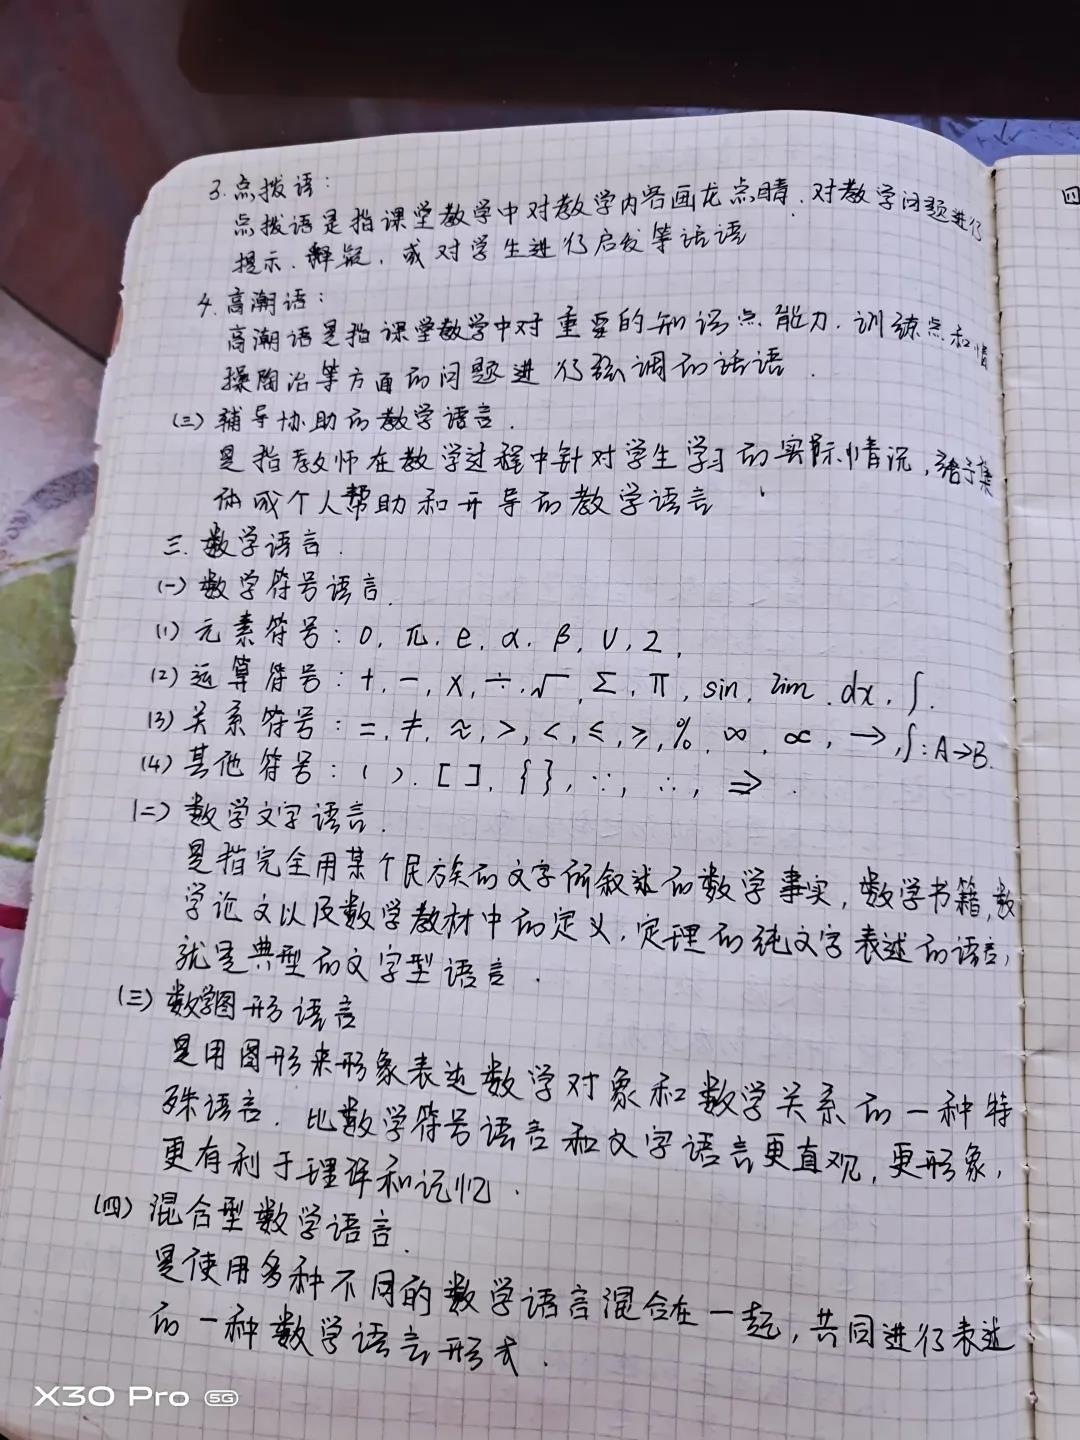 3. 点拨语：
点拨语是指课堂教学中对教学内容画龙点睛、对教学问题进行
提示、释疑，或对学生进行启发等话语
4. 高潮语：
高潮语是指课堂教学中对重要的知识点能力、训练点和情
操陶冶等方面的问题进行强调的话语.
(三) 辅导协助的教学语言.
是指教师在教学过程中针对学生学习的实际情况，给予集
体或个人帮助和开导的教学语言
三. 数学语言.
(一) 数学符号语言.
(1) 元素符号：0, π, e, α, β, U, 2,
(2) 运算符号：+, -, ×, ÷, √, Σ, π, sin, lim, dx, ∫.
(3) 关系符号：=, ≠, ≈, >, <, ≤, ≥, %, ∞, ∝, →, ∫: A→B.
(4) 其他符号：( ), [ ], { }, ∵, ∴, ⇒.
(二) 数学文字语言.
是指完全用某个民族的文字所叙述的数学事实，数学书籍,数
学论文以及数学教材中的定义，定理的纯文字表述的语言,
就是典型的文字型语言.
(三) 数学图形语言
是用图形来形象表达数学对象和数学关系的一种特
殊语言，比数学符号语言和文字语言更直观，更形象，
更有利于理详和记忆.
(四) 混合型数学语言.
是使用多种不同的数学语言混合在一起，共同进行表述
的一种数学语言形式.
四
X30 Pro 5G